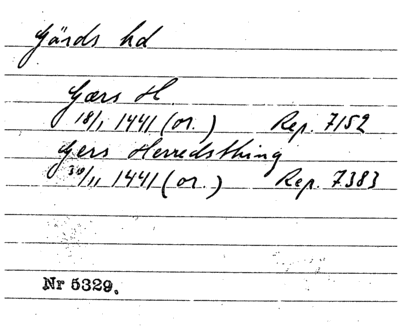 Gärds hd
Gærs H
18/1 1441 (or.) Rep. 7152
Gers Herredsthing
30/11 1441 (or.) Rep. 7383
Nr 5329.